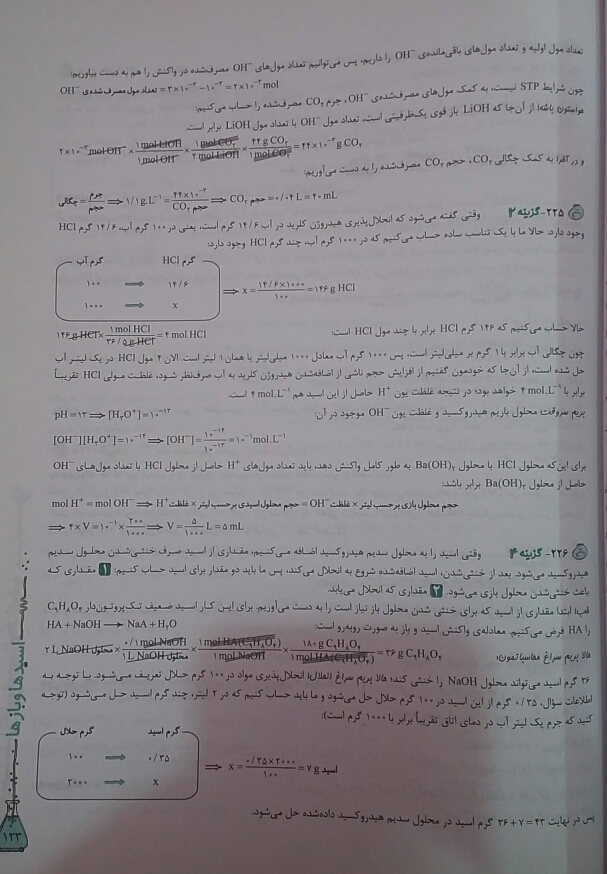 تعداد مول اولیه و تعداد مول‌های باقی‌مانده‌ی OH⁻ را داریم، پس می‌توانیم تعداد مول‌های OH⁻ مصرف‌شده در واکنش را هم به دست بیاوریم:
۳×۱۰⁻²−۱۰⁻²=۲×۱۰⁻² mol = تعداد مول مصرف‌شده‌ی OH⁻
چون شرایط STP نیست، به کمک مول‌های مصرف‌شده‌ی OH⁻، جرم CO₂ مصرف‌شده را حساب می‌کنیم:
هواستون باشه! از آن‌جا که LiOH باز قوی یک‌ظرفیتی است، تعداد مول OH⁻ با تعداد مول LiOH برابر است.
۲×۱۰⁻² mol OH⁻ × ۱ mol LiOH / ۱ mol OH⁻ × ۱ mol CO₂ / ۲ mol LiOH × ۴۴ g CO₂ / ۱ mol CO₂ = ۴۴×۱۰⁻² g CO₂
و در آخر! به کمک چگالی CO₂، حجم CO₂ مصرف‌شده را به دست می‌آوریم:
چگالی = جرم / حجم ⟹ ۱/۱ g.L⁻¹ = ۴۴×۱۰⁻² / حجم CO₂ ⟹ حجم CO₂ = ۰/۰۴ L = ۴۰ mL
۲۲۵- گزینه ۲ وقتی گفته می‌شود که انحلال‌پذیری هیدروژن کلرید در آب ۱۴/۶ گرم است، یعنی در ۱۰۰ گرم آب، ۱۴/۶ گرم HCl
وجود دارد. حالا ما با یک تناسب ساده حساب می‌کنیم که در ۱۰۰۰ گرم آب، چند گرم HCl وجود دارد:
گرم آب گرم HCl
۱۰۰ ⟹ ۱۴/۶
۱۰۰۰ ⟹ x
⟹ x = ۱۴/۶×۱۰۰۰ / ۱۰۰ = ۱۴۶ g HCl
حالا حساب می‌کنیم که ۱۴۶ گرم HCl برابر با چند مول HCl است:
۱۴۶ g HCl × ۱ mol HCl / ۳۶/۵ g HCl = ۴ mol HCl
چون چگالی آب برابر با ۱ گرم بر میلی‌لیتر است، پس ۱۰۰۰ گرم آب معادل ۱۰۰۰ میلی‌لیتر یا همان ۱ لیتر است. الان ۴ مول HCl در یک لیتر آب
حل شده است، از آن‌جا که خودمون گفتیم از افزایش حجم ناشی از اضافه‌شدن هیدروژن کلرید به آب صرف‌نظر شود، غلظت مولی HCl تقریباً
برابر با ۴ mol.L⁻¹ خواهد بود؛ در نتیجه غلظت یون H⁺ حاصل از این اسید هم ۴ mol.L⁻¹ است.
بریم سروقت محلول باریم هیدروکسید و غلظت یون OH⁻ موجود در آن:
pH = ۱۳ ⟹ [H₃O⁺] = ۱۰⁻¹³
[OH⁻][H₃O⁺] = ۱۰⁻¹⁴ ⟹ [OH⁻] = ۱۰⁻¹⁴ / ۱۰⁻¹³ = ۱۰⁻¹ mol.L⁻¹
برای این‌که محلول HCl با محلول Ba(OH)₂ به طور کامل واکنش دهد، باید تعداد مول‌های H⁺ حاصل از محلول HCl با تعداد مول‌های OH⁻
حاصل از محلول Ba(OH)₂ برابر باشد:
mol H⁺ = mol OH⁻ ⟹ حجم محلول بازی برحسب لیتر × غلظت OH⁻ = حجم محلول اسیدی برحسب لیتر × غلظت H⁺
⟹ ۴×V = ۱۰⁻¹ × ۲۰۰ / ۱۰۰۰ ⟹ V = ۵ / ۱۰۰۰ L = ۵ mL
۲۲۶- گزینه ۴ وقتی اسید را به محلول سدیم هیدروکسید اضافه می‌کنیم، مقداری از اسید صرف خنثی‌شدن محلول سدیم
هیدروکسید می‌شود. بعد از خنثی‌شدن، اسید اضافه‌شده شروع به انحلال می‌کند، پس ما باید دو مقدار برای اسید حساب کنیم: ۱ مقداری که
باعث خنثی‌شدن محلول بازی می‌شود. ۲ مقداری که انحلال می‌یابد.
ابتدا مقداری از اسید که برای خنثی شدن محلول باز نیاز است را به دست می‌آوریم. برای این کار اسید ضعیف تک‌پروتون‌دار C₉H₈O₄
را HA فرض می‌کنیم. معادله‌ی واکنش اسید و باز به صورت روبه‌رو است: HA + NaOH ⟶ NaA + H₂O
حالا بریم سراغ محاسباتمون: ۲ L محلول NaOH × ۰/۱ mol NaOH / ۱ L محلول NaOH × ۱ mol HA(C₉H₈O₄) / ۱ mol NaOH × ۱۸۰ g C₉H₈O₄ / ۱ mol HA(C₉H₈O₄) = ۳۶ g C₉H₈O₄
۳۶ گرم اسید می‌تواند محلول NaOH را خنثی کند؛ حالا بریم سراغ انحلال! انحلال‌پذیری مواد در ۱۰۰ گرم حلال تعریف می‌شود. با توجه به
اطلاعات سؤال، ۰/۳۵ گرم از این اسید در ۱۰۰ گرم حلال حل می‌شود و ما باید حساب کنیم که در ۲ لیتر، چند گرم اسید حل می‌شود (توجه
کنید که جرم یک لیتر آب در دمای اتاق تقریباً برابر با ۱۰۰۰ گرم است):
گرم حلال گرم اسید
۱۰۰ ⟹ ۰/۳۵
۲۰۰۰ ⟹ x
⟹ x = ۰/۳۵×۲۰۰۰ / ۱۰۰ = ۷ g اسید
پس در نهایت ۴۳ = ۷ + ۳۶ گرم اسید در محلول سدیم هیدروکسید داده‌شده حل می‌شود.
اسیدها و بازها
۱۲۳